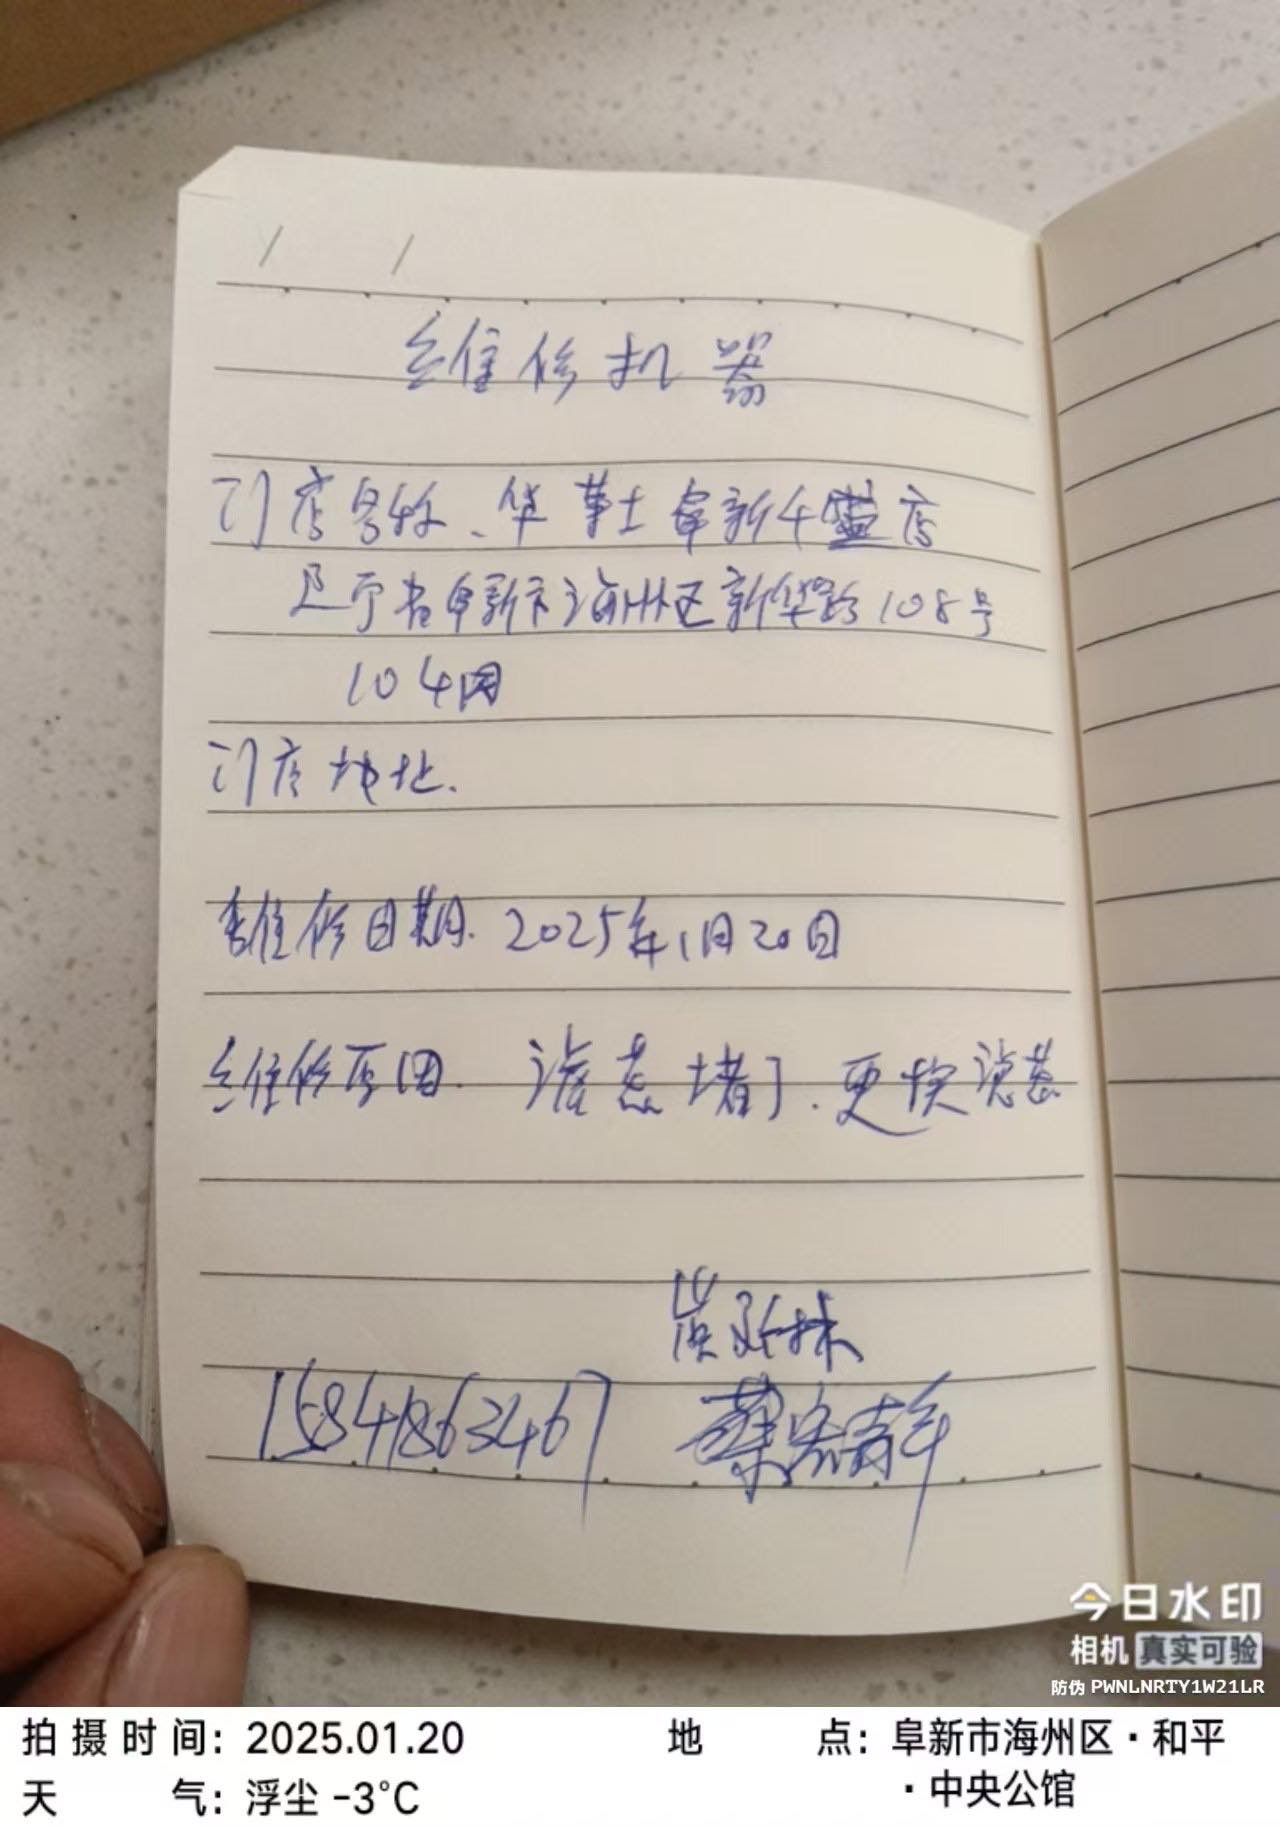 维修机器
门店名称、华莱士阜新千盛店
辽宁省阜新市海州区新华路108号
104网
门店地址.
维修日期. 2025年1月20日
维修原因. 滤芯堵了.更换滤芯
15841863467
今日水印
相机 真实可验
防伪 PWNLNRTY1W21LR
拍摄时间: 2025.01.20 地点: 阜新市海州区·和平
天气: 浮尘 -3°C ·中央公馆